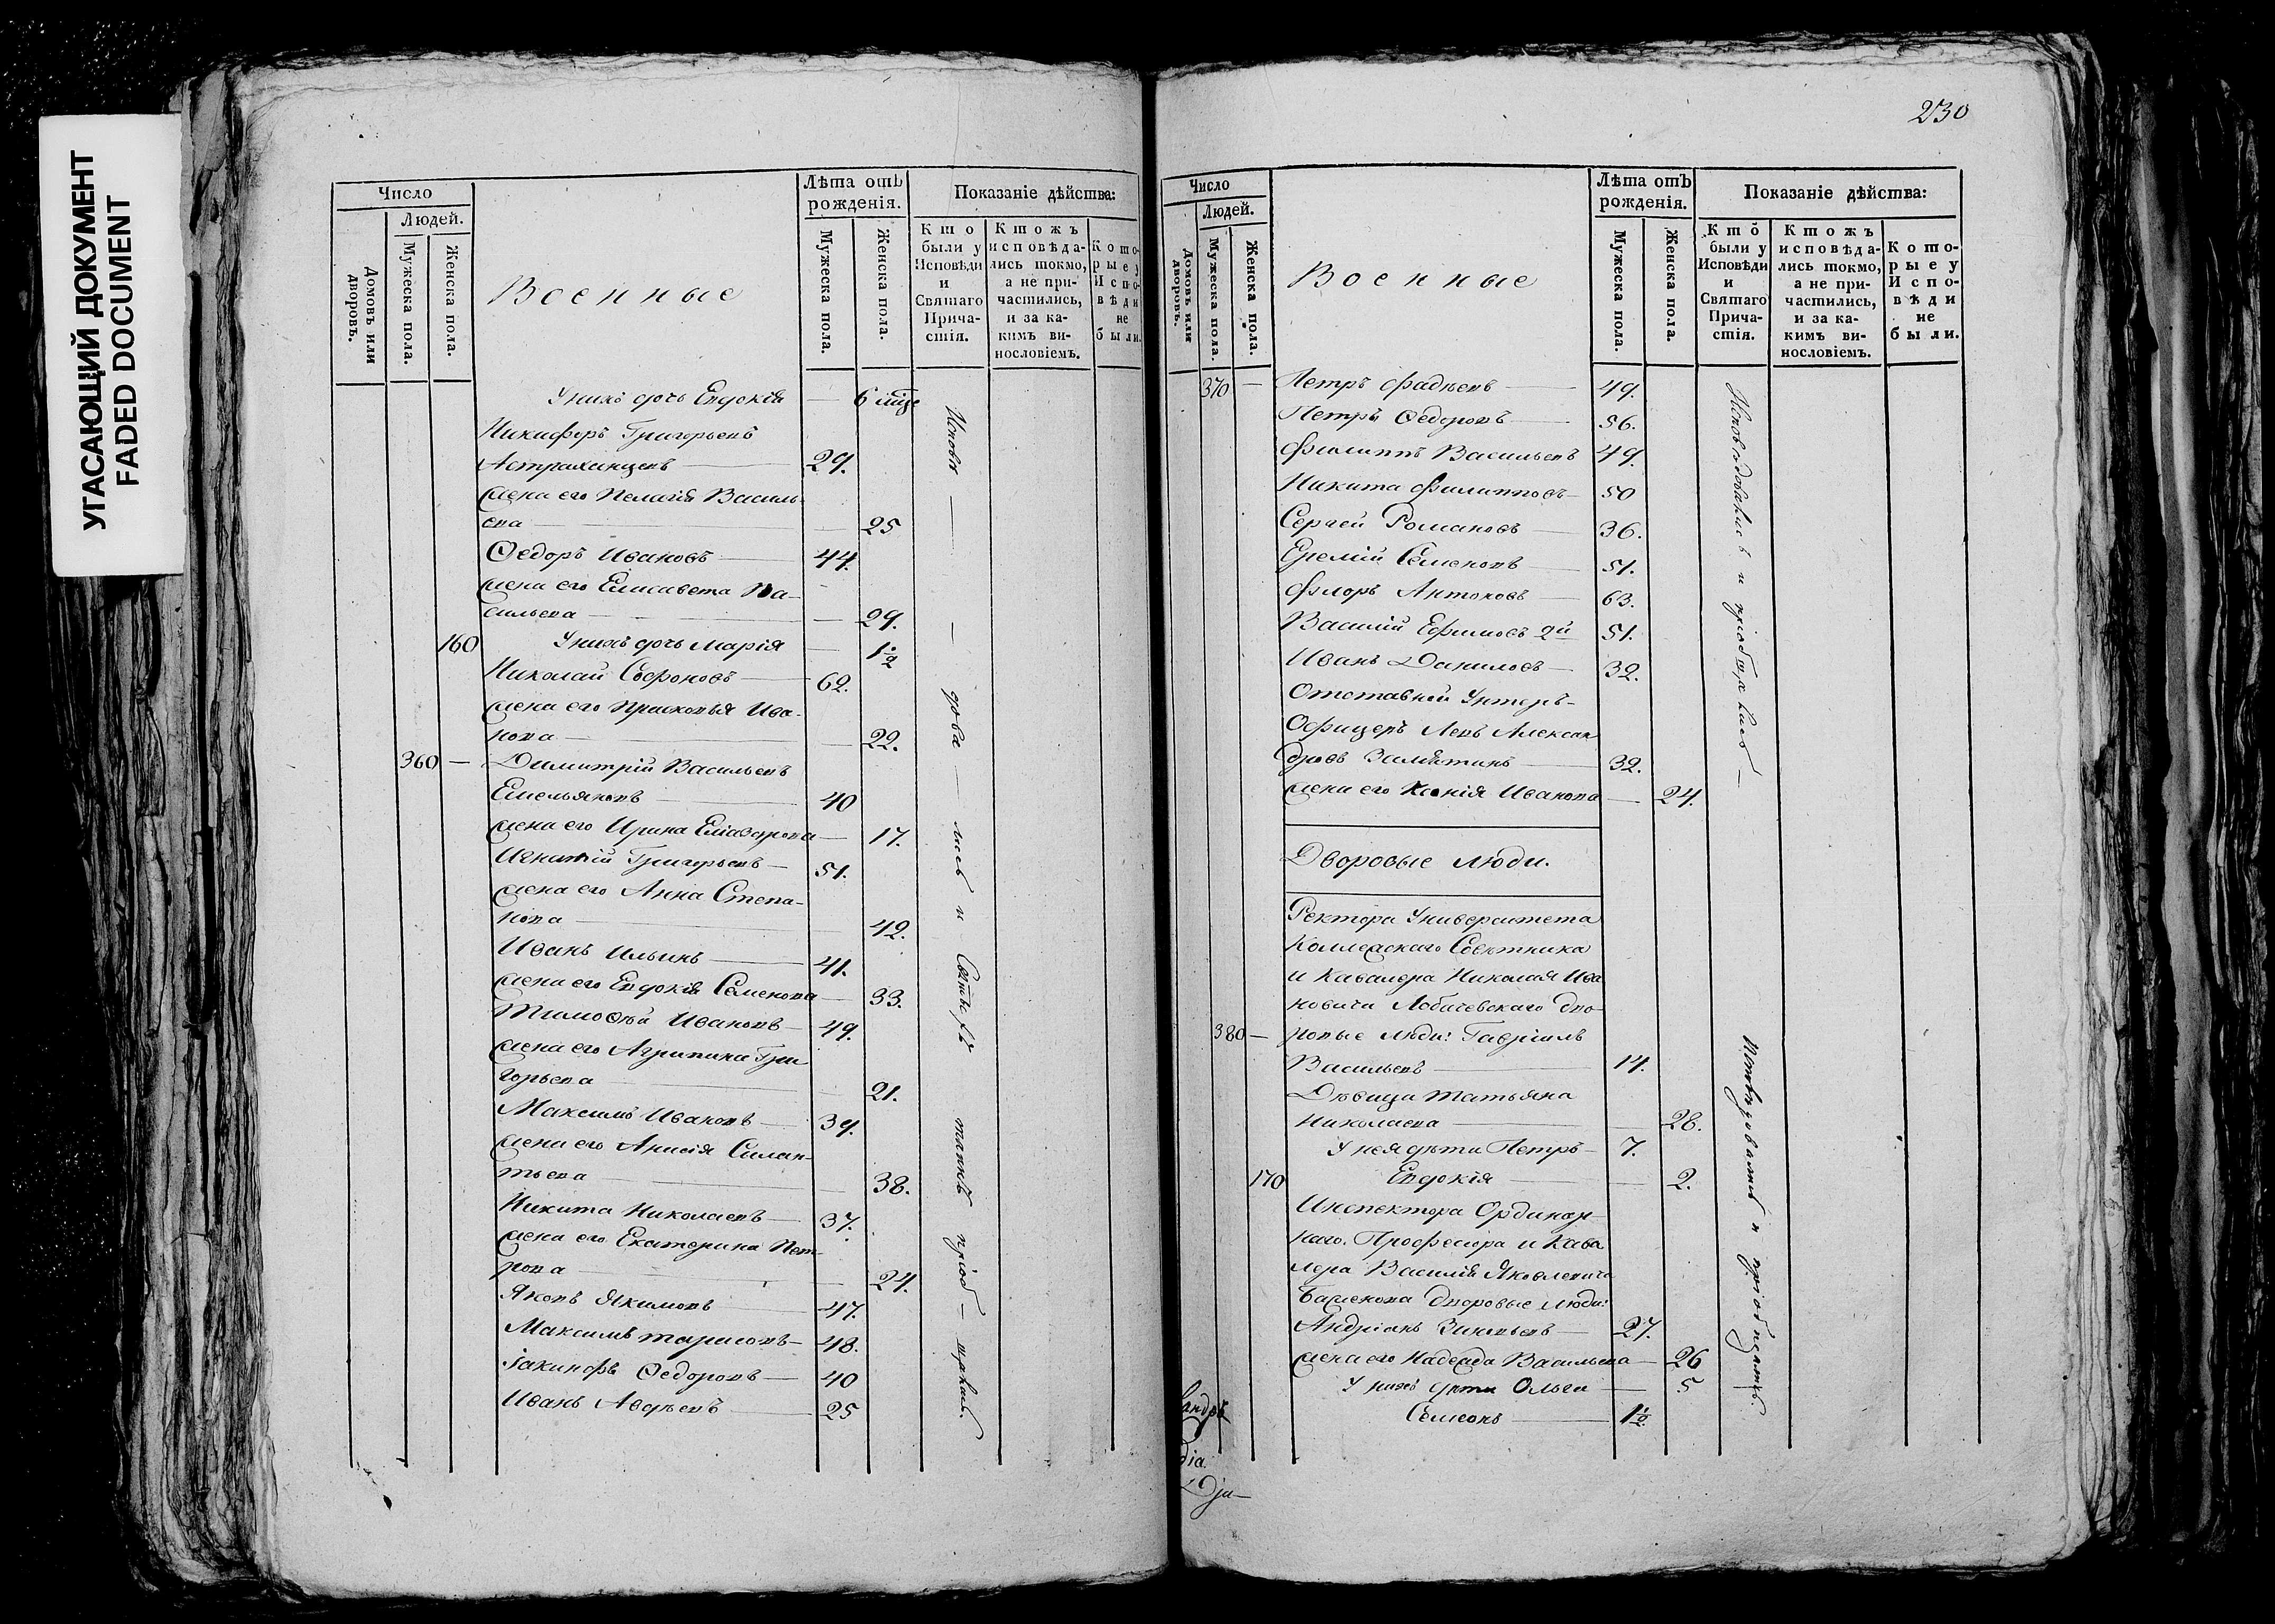 УГАСАЮЩИЙ ДОКУМЕНТ
FADED DOCUMENT
Число
Людей.
Домовъ или дворовъ.
Мужеска пола.
Женска пола.
Военные
Лѣта отъ рожденія.
Мужеска пола.
Женска пола.
Показаніе дѣйства:
Кто были у Исповѣди и Святаго Прича-стія.
Ктожъ исповѣда-лись токмо, а не при-частились, и за ка-кимъ ви-нословіемъ.
Кото-рые у Испо-вѣди не были.
У нихъ дочь Евдокія — 6
Никифоръ Григорьевъ
Астраханцевъ — 29.
жена его Пелагія Василь-
ева — 25
Ѳедоръ Ивановъ — 44.
жена его Елисавета Ва-
сильева — 29.
160 У нихъ дочь Марія — 1½
Николай Софроновъ — 62.
жена его Прасковья Ива-
нова — 22.
360 — Димитрій Васильевъ
Емельяновъ — 40
жена его Ирина — 17.
Игнатій Григорьевъ — 51.
жена его Анна Степа-
нова — 42.
Иванъ Ильинъ — 41.
жена его Евдокія Семенова — 33.
Тимоѳей Ивановъ — 49.
жена его Агрипина Гри
горьева — 21.
Максимъ Ивановъ — 39.
жена его Анисія Силан-
тьева — 38.
Никита Николаевъ — 37.
жена его Екатерина Пет-
рова — 24.
Яковъ Якимовъ — 47.
Максимъ Тарасовъ — 48.
Іакинфъ Ѳедоровъ — 40
Иванъ Авдѣевъ — 25
230
Число
Людей.
Домовъ или дворовъ.
Мужеска пола.
Женска пола.
Военные
Лѣта отъ рожденія.
Мужеска пола.
Женска пола.
Показаніе дѣйства:
Кто были у Исповѣди и Святаго Прича-стія.
Ктожъ исповѣда-лись токмо, а не при-частились, и за ка-кимъ ви-нословіемъ.
Кото-рые у Испо-вѣди не были.
370 — Петръ Фадѣевъ — 49.
Петръ Ѳедоровъ — 56.
Филиппъ Васильевъ 49.
Никита Филипповъ — 50
Сергей Романовъ — 36.
Еремій Семеновъ — 51.
Флоръ Антоновъ — 63.
Василій Ефимовъ 2й 51.
Иванъ Даниловъ — 32.
Отставной Унтеръ-
Офицеръ Левъ Алексан
дровъ Замятинъ — 32.
жена его Ксенія Иванова — 24.
Исповѣдовались и пріобщались —
Дворовые люди.
Ректора Университета
Коллежскаго Совѣтника
и Кавалера Николая Ива
новича Лобачевскаго дво-
380 — ровые люди: Гавріилъ
Васильевъ — 14.
Дѣвица Татьяна
Николаева — 28.
У нея дѣти Петръ — 7.
170 Евдокія — 2.
Инспектора Ординар-
наго Професора и Кава
лера Василія Яковлевича
Баженова дворовые люди:
Андріанъ Зиновьевъ — 27.
жена его Надежда Васильева — 26
У нихъ дѣти Ольга — 5
Семенъ — 1½